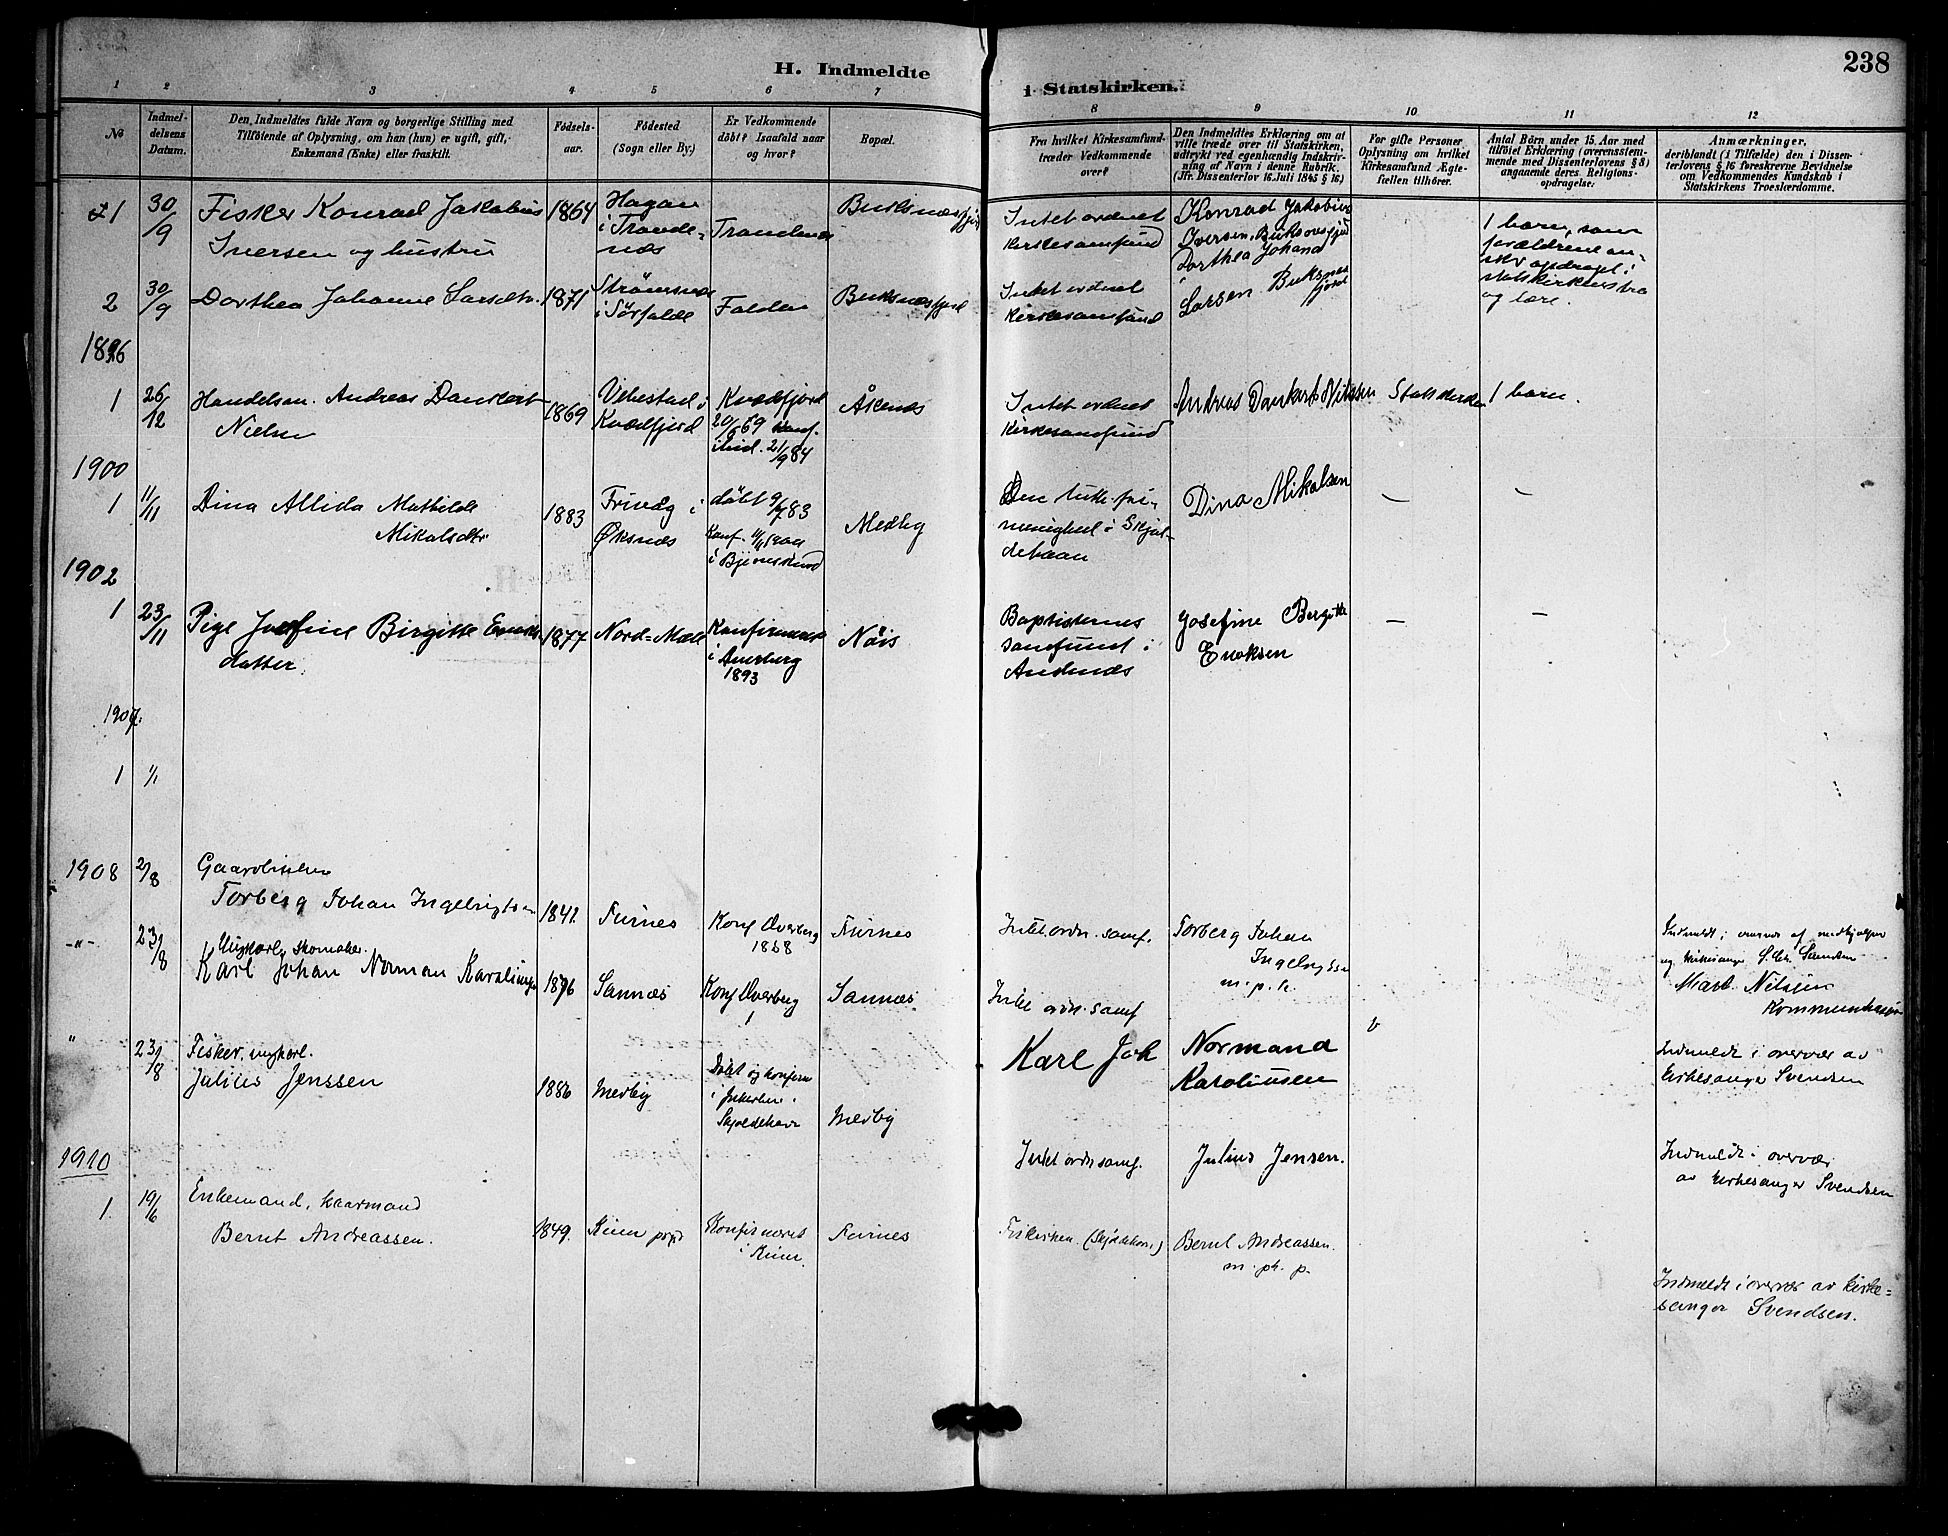 238
H. Indmeldte i Statskirken.
1 2 3 4 5 6 7 8 9 10 11 12
No
Indmel-
delsens
Datum.
Den Indmeldtes fulde Navn og borgerlige Stilling med
Tilføiende af Oplysning, om han (hun) er ugift, gift,
Enkemand (Enke) eller fraskilt.
Fødsels-
aar.
Fødested
(Sogn eller By.)
Er Vedkommende
døbt? Isaafald naar
og hvor?
Bopæl.
Fra hvilket Kirkesamfund
træder Vedkommende
over?
Den Indmeldtes Erklæring om at
ville træde over til Statskirken,
udtrykt ved egenhændig Indskriv-
ning af Navn i denne Rubrik.
(Jfr. Dissenterlov 16 Juli 1845 § 16.)
For gifte Personer
Oplysning om hvilket
Kirkesamfund Ægte-
fællen tilhører.
Antal Børn under 15 Aar med
tilføiet Erklæring (overensstem-
mende med Dissenterlovens § 8)
angaaende deres Religions-
opdragelse.
Anmærkninger,
deriblandt (i Tilfælde) den i Dissen-
terlovens § 16 foreskrevne Bevidnelse
om Vedkommendes Kundskab i
Statskirkens Troeslærdomme.
1
30/9
Fisker Konrad Jakobius
Iversen og hustru
1864
Hagan
i Tronde-
næs
Trondenæs
Buksnæsfjord
Intet ordnet
kirkesamfund
Konrad Jakobius
Iversen, Buksnesfjord
Dorthea Johana
Larsen Buksnes
fjord
1 barn, som
forældrene øn-
ske opdraget i
statskirkens tro
og lære.
2
30/9
Dorthea Johanne Larsdtr.
1871
Strømsnes
i Sørfolde
Folden
Buksnæsfjord
Intet ordnet
kirkesamfund
1896
1
26/12
Handelsm. Andreas Dankert
Nielsen
1869
Vebestad i
Kvædfjord
Kvædfjord
20/6 69 konf.
ibid. 21/9 84
Åknes
Intet ordnet
kirkesamfund
Andreas Dankert Nilssen
Statskirken
1 barn.
1900
1
11/11
Dina Allida Mathilde
Mikalsdtr.
1883
i
Øksnæs
døbt 9/7 83
Konf. 11/11 1900
i Bjørnskind
Medby
Den luth. fri-
menighed i Skjol-
dehavn
Dina Mikalsen
—
—
1902
1
23/11
Pige Josefine Birgitte Enoks
datter.
1877
Nord-Mæle
Konfirmeret
i Anerberg
1893
Nøis
Baptisternes
samfund i
Andenæs
Josefine Bergitte
Enoksen
—
—
1907.
1
1/1
1908
2/8
Gaardbruker
Torberg Johan Ingebrigtsen
1842
Furnes
Konf Överberg
1858
Furnes
Intet ordn. samf.
Torberg Johan
Ingebrigtsen
m. p. p.
Indmeldt i overvær af medhjelper
og kirkesanger Svendsen
Mart. Nilssen
-"-
23/8
Ungkarl, skomaker.
Karl Johan Norman Karoliusen
1876
Sannæs
Konf Överberg
Sannæs
Intet ordn. samf
Karl Joh Normand
Karoliussen
Indmeldt i overvær av
kirkesanger Svendsen
"
23/8
Fisker, ungkarl.
Julius Jenssen
1886
Medby
Døbt og konfirm
i frikirken i
Skjoldehavn
Medby
Intet ordn samf.
Julius Jensen.
Indmeldt i overvær
av kirkesanger Svendsen
1910
1.
19/6
Enkemand, kaarmand
Bernt Andreassen.
1849.
Konfirmeret
i
Furnes
Frikirken (Skjoldehavn)
Bernt Andreassen.
m. ph. p.
Indmeldt i overvær av kirke-
sanger Svendsen.